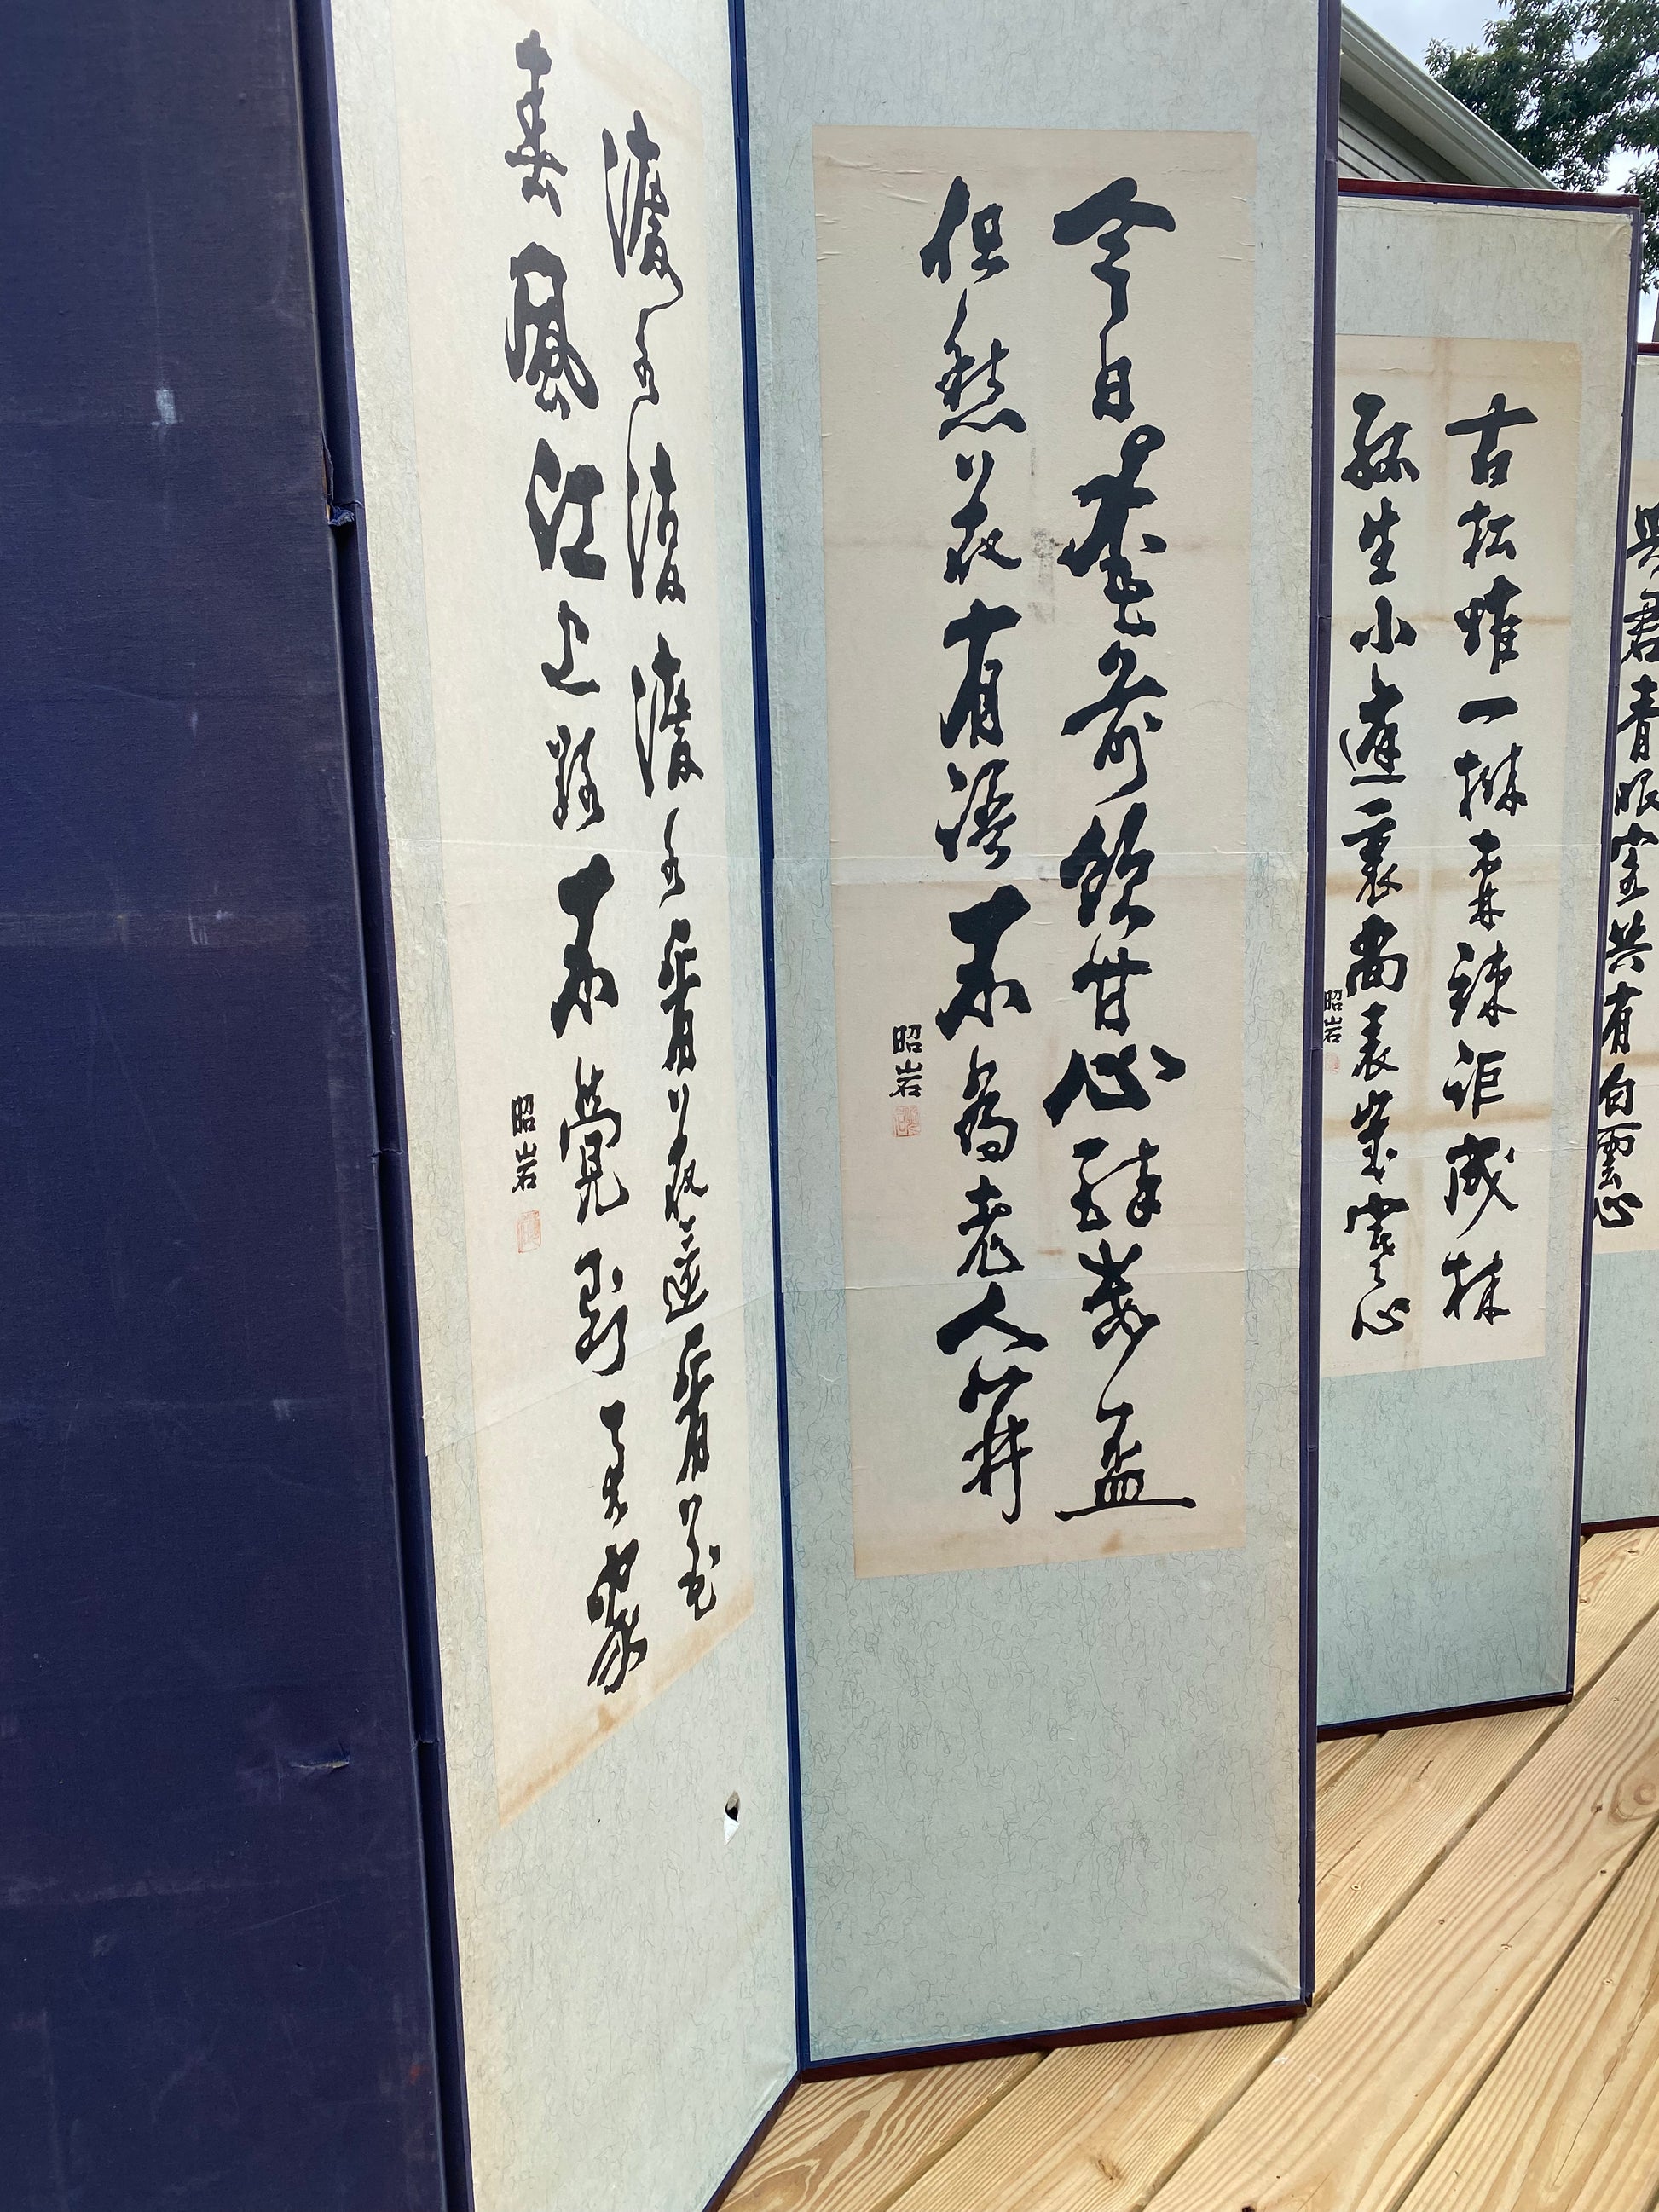 與君青眼客共有白雲心
古松惟一樹森竦詎成林
孤生小庭裏尚表歲寒心
昭岩
今日花前飲甘心醉數盃
但愁花有語不為老人開
昭岩
渡水復渡水看花還看花
春風江上路不覺到君家
昭岩